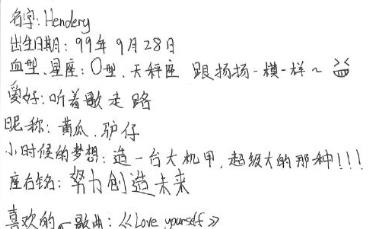 名字: Hendery
出生日期: 99年 9月28日
血型、星座: O型、天秤座 跟扬扬一模一样~
爱好: 听着歌走路
昵称: 黄瓜、驴仔
小时候的梦想: 造一台大机甲, 超级大的那种!!!
座右铭: 努力创造未来
喜欢的一歌曲: 《Love yourself》